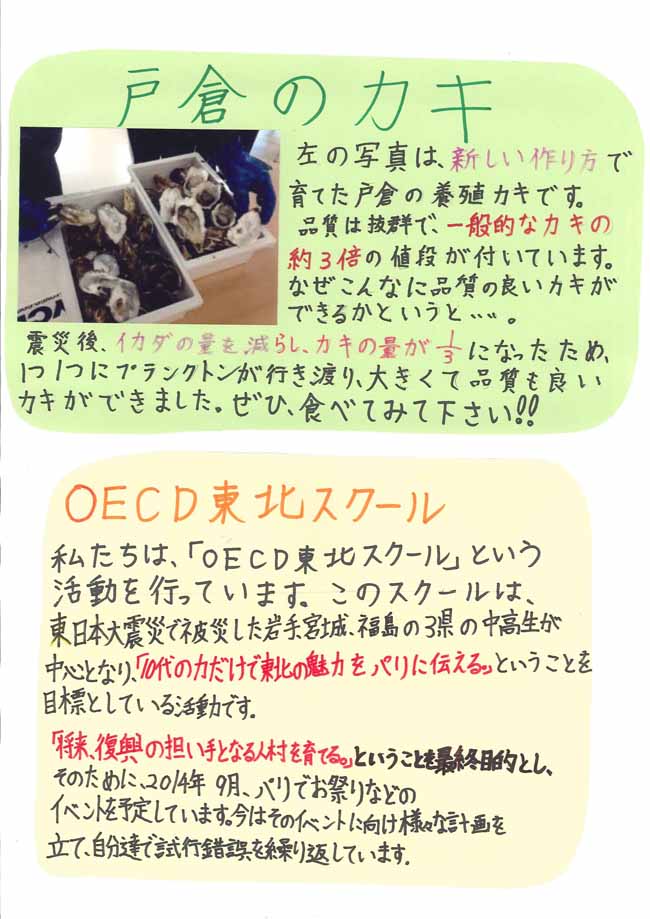 戸倉のカキ
左の写真は、新しい作り方で
育てた戸倉の養殖カキです。
品質は抜群で、一般的なカキの
約3倍の値段が付いています。
なぜこんなに品質の良いカキが
できるかというと…。
震災後、イカダの量を減らし、カキの量が1/3になったため、
1つ1つにプランクトンが行き渡り、大きくて品質も良い
カキができました。ぜひ、食べてみて下さい!!
OECD東北スクール
私たちは、「OECD東北スクール」という
活動を行っています。このスクールは、
東日本大震災で被災した岩手宮城、福島の3県の中高生が
中心となり、「10代の力だけで東北の魅力をパリに伝える。」ということを
目標としている活動です。
「将来、復興の担い手となる人材を育てる。」ということを最終目的とし、
そのために、2014年9月、パリでお祭りなどの
イベントを予定しています。今はそのイベントに向け様々な計画を
立て、自分達で試行錯誤を繰り返しています。